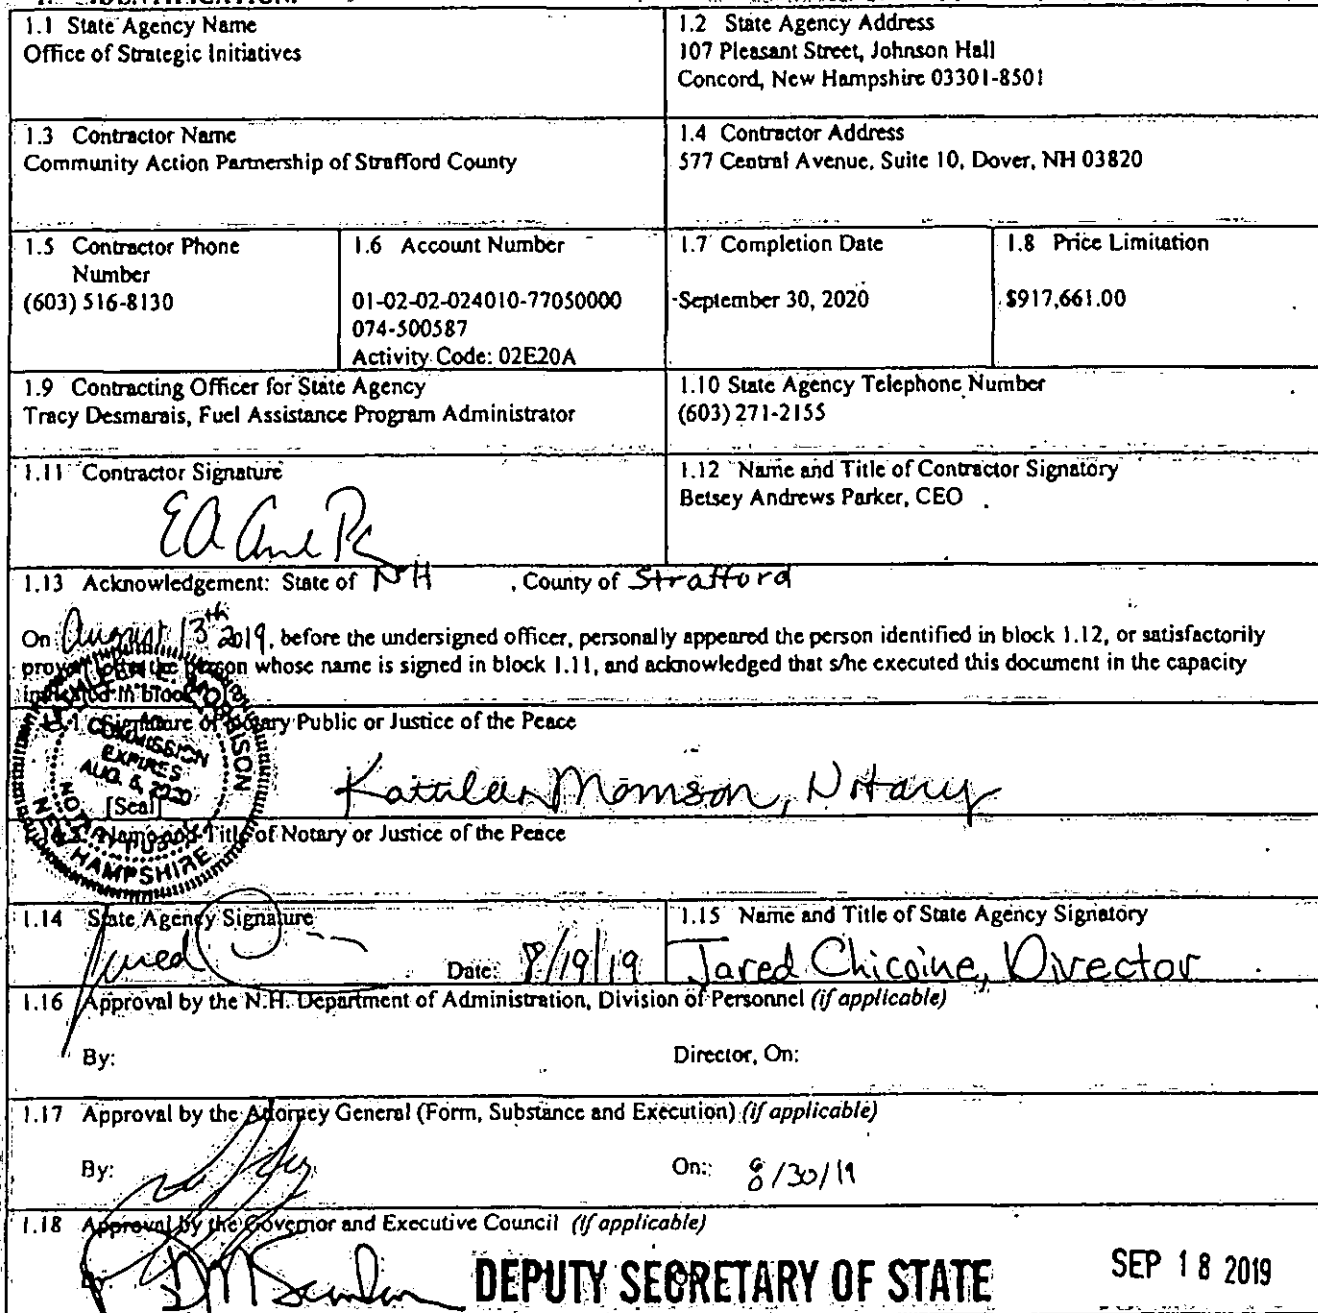 1. IDENTIFICATION.
1.1 State Agency Name
Office of Strategic Initiatives
1.2 State Agency Address
107 Pleasant Street, Johnson Hall
Concord, New Hampshire 03301-8501
1.3 Contractor Name
Community Action Partnership of Strafford County
1.4 Contractor Address
577 Central Avenue, Suite 10, Dover, NH 03820
1.5 Contractor Phone
Number
(603) 516-8130
1.6 Account Number
01-02-02-024010-77050000
074-500587
Activity Code: 02E20A
1.7 Completion Date
September 30, 2020
1.8 Price Limitation
$917,661.00
1.9 Contracting Officer for State Agency
Tracy Desmarais, Fuel Assistance Program Administrator
1.10 State Agency Telephone Number
(603) 271-2155
1.11 Contractor Signature
1.12 Name and Title of Contractor Signatory
Betsey Andrews Parker, CEO
1.13 Acknowledgement: State of NH , County of Strafford
On August 13th 2019, before the undersigned officer, personally appeared the person identified in block 1.12, or satisfactorily
person whose name is signed in block 1.11, and acknowledged that s/he executed this document in the capacity
in block
Signature of Notary Public or Justice of the Peace
KATHLEEN E. MORRISON
COMMISSION
EXPIRES
AUG. 6, 2020
[Seal]
NOTARY PUBLIC
NEW HAMPSHIRE
Kathleen Morrison, Notary
Name and Title of Notary or Justice of the Peace
1.14 State Agency Signature
Jared
Date: 8/19/19
1.15 Name and Title of State Agency Signatory
Jared Chicoine, Director
1.16 Approval by the N.H. Department of Administration, Division of Personnel (if applicable)
By: Director, On:
1.17 Approval by the Attorney General (Form, Substance and Execution) (if applicable)
By: On: 8/30/19
1.18 Approval by the Governor and Executive Council (if applicable)
DEPUTY SECRETARY OF STATE SEP 18 2019